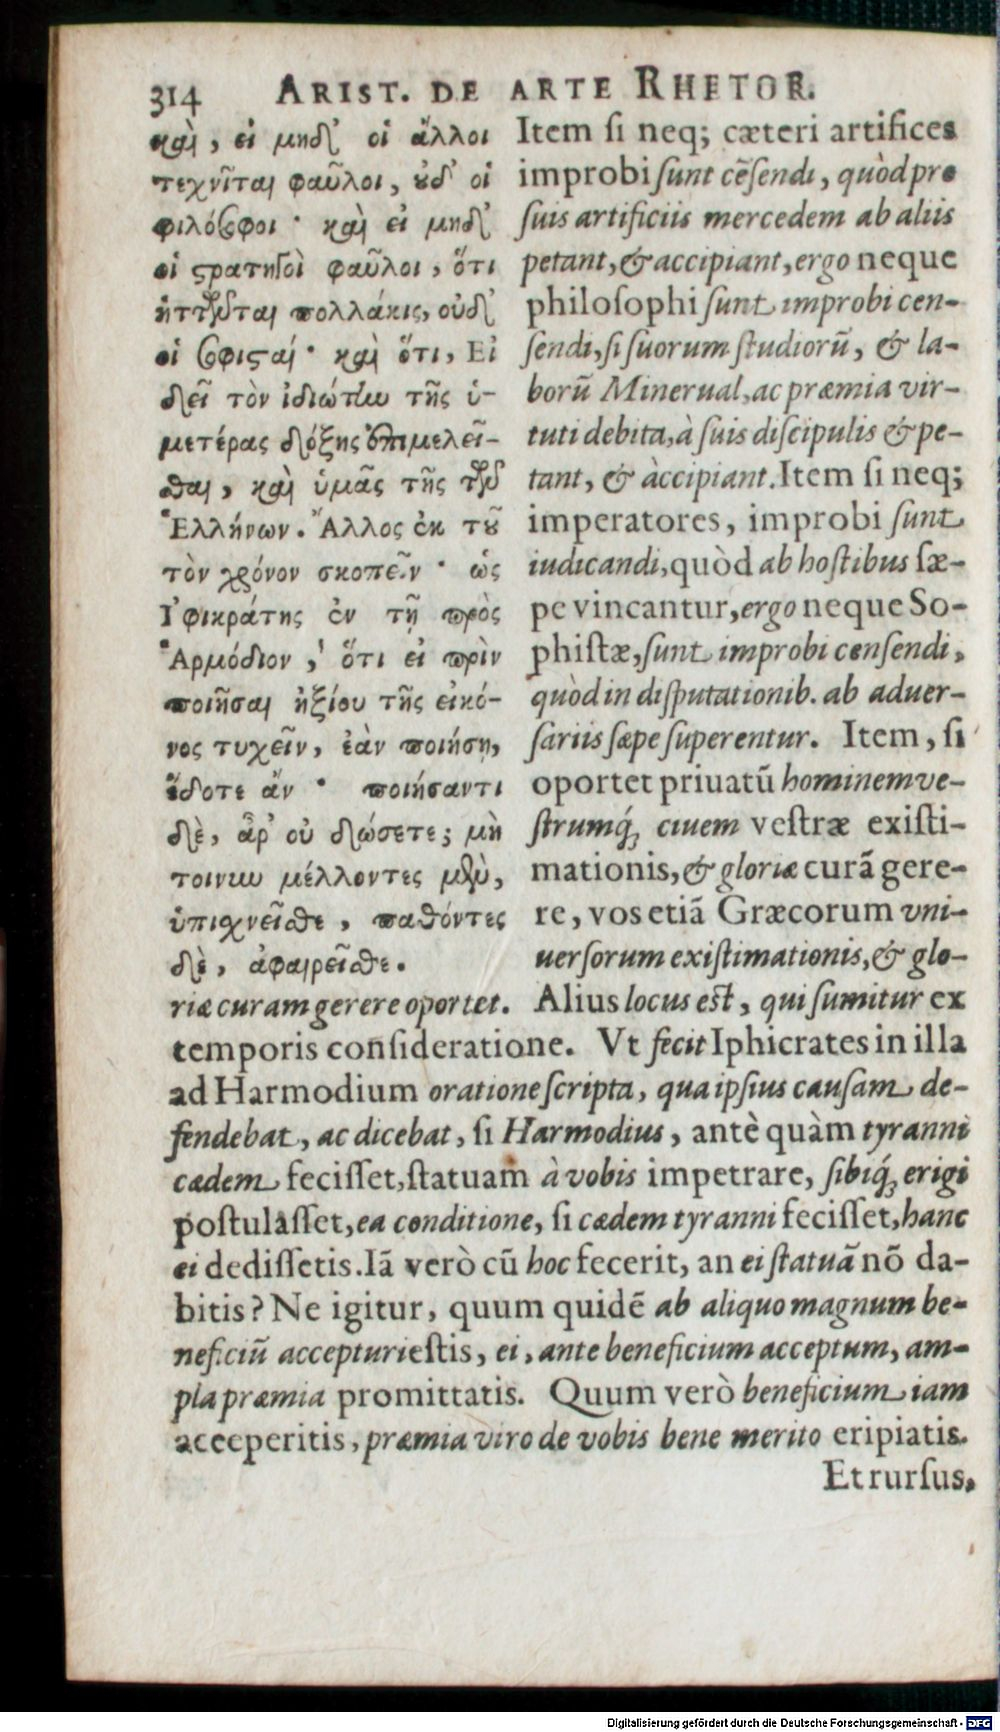 314 ARIST. DE ARTE RHETOR.
καὶ, εἰ μηδ' οἱ ἄλλοι
τεχνῖται φαῦλοι, ȣδ' οἱ
φιλόσοφοι· καὶ εἰ μηδ'
οἱ ϛρατηγοὶ φαῦλοι, ὅτι
ἡττῶνται πολλάκις, οὐδ'
οἱ σοφιϛαί· καὶ ὅτι, Εἰ
δεῖ τὸν ἰδιώτην τῆς ὑ-
μετέρας δόξης ἐπιμελεῖ-
σθαι, καὶ ὑμᾶς τῆς τῶν
Ἑλλήνων. Ἄλλος ἐκ τȣ͂
τὸν χρόνον σκοπεῖν· ὡς
Ἰφικράτης ἐν τῇ πρὸς
Ἁρμόδιον, ὅτι εἰ πρὶν
ποιῆσαι ἠξίου τῆς εἰκό-
νος τυχεῖν, ἐὰν ποιήσῃ,
ἔδοτε ἄν· ποιήσαντι
δὲ, ἆρ' οὐ δώσετε; μὴ
τοίνυν μέλλοντες μὲν,
ὑπισχνεῖσθε, παθόντες
δὲ, ἀφαιρεῖσθε.
Item ſi neq; cæteri artifices
improbi ſunt cēſendi, quòd pro
ſuis artificiis mercedem ab aliis
petant, & accipiant, ergo neque
philoſophi ſunt improbi cen-
ſendi, ſi ſuorum ſtudiorū, & la-
borū Minerual, ac præmia vir-
tuti debita, à ſuis diſcipulis & pe-
tant, & àccipiant. Item ſi neq;
imperatores, improbi ſunt
iudicandi, quòd ab hoſtibus ſæ-
pe vincantur, ergo neque So-
phiſtæ, ſunt improbi cenſendi,
quòd in diſputationib. ab aduer-
ſariis ſæpe ſuperentur. Item, ſi
oportet priuatū hominem ve-
ſtrumq́; ciuem veſtræ exiſti-
mationis, & gloriæ curā gere-
re, vos etiā Græcorum vni-
uerſorum exiſtimationis, & glo-
riæ curam gerere oportet. Alius locus eſt, qui ſumitur ex
temporis conſideratione. Vt fecit Iphicrates in illa
ad Harmodium oratione ſcripta, qua ipſius cauſam de-
fendebat, ac dicebat, ſi Harmodius, antè quàm tyranni
cædem feciſſet, ſtatuam à vobis impetrare, ſibiq́; erigi
poſtulaſſet, ea conditione, ſi cædem tyranni feciſſet, hanc
ei dediſſetis. Iā verò cū hoc fecerit, an ei ſtatuā nō da-
bitis? Ne igitur, quum quidē ab aliquo magnum be-
neficiū accepturi eſtis, ei, ante beneficium acceptum, am-
pla præmia promittatis. Quum verò beneficium iam
acceperitis, præmia viro de vobis bene merito eripiatis.
Et rurſus,
Digitalisierung gefördert durch die Deutsche Forschungsgemeinschaft - DFG